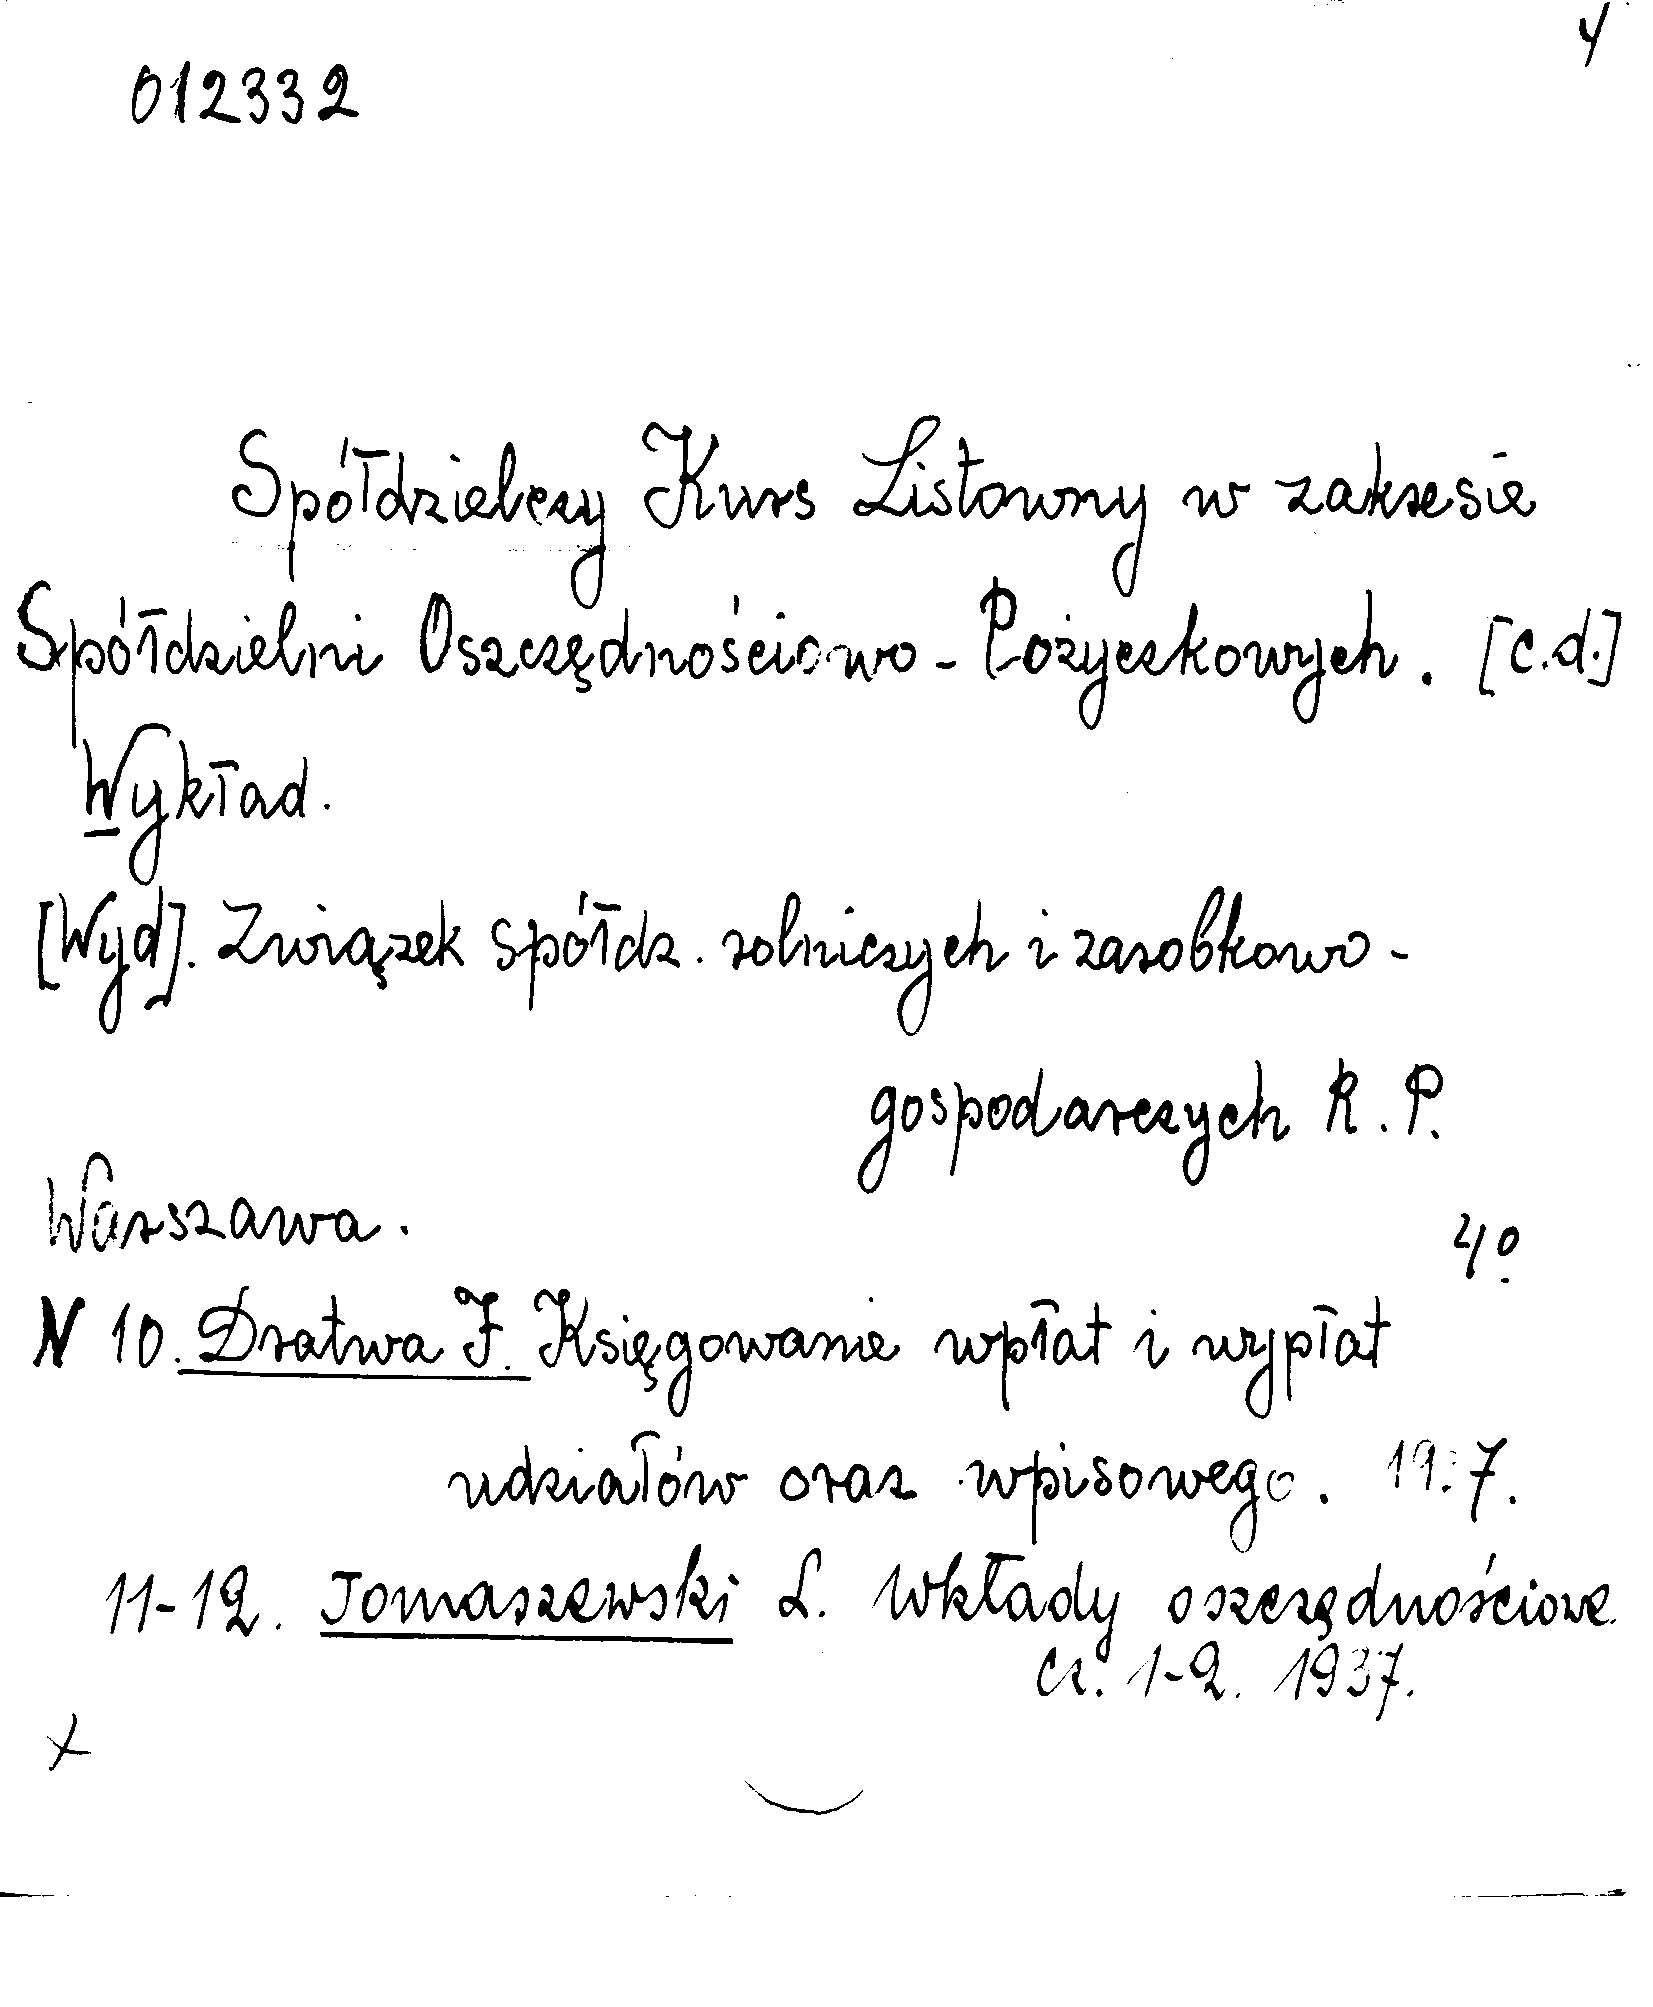 4
012332
Spółdzielczy Kurs Listowny w zakresie
Spółdzielni Oszczędnościowo - Pożyczkowych. [c.d.]
Wykład.
[Wyd]. Związek spółdz. rolniczych i zarobkowo -
gospodarczych R.P.
Warszawa.
4º
N 10. Dratwa F. Księgowanie wpłat i wypłat
udziałów oraz wpisowego. 19 7.
11-12. Tomaszewski L. Wkłady oszczędnościowe
cz. 1-2. 1937.
x